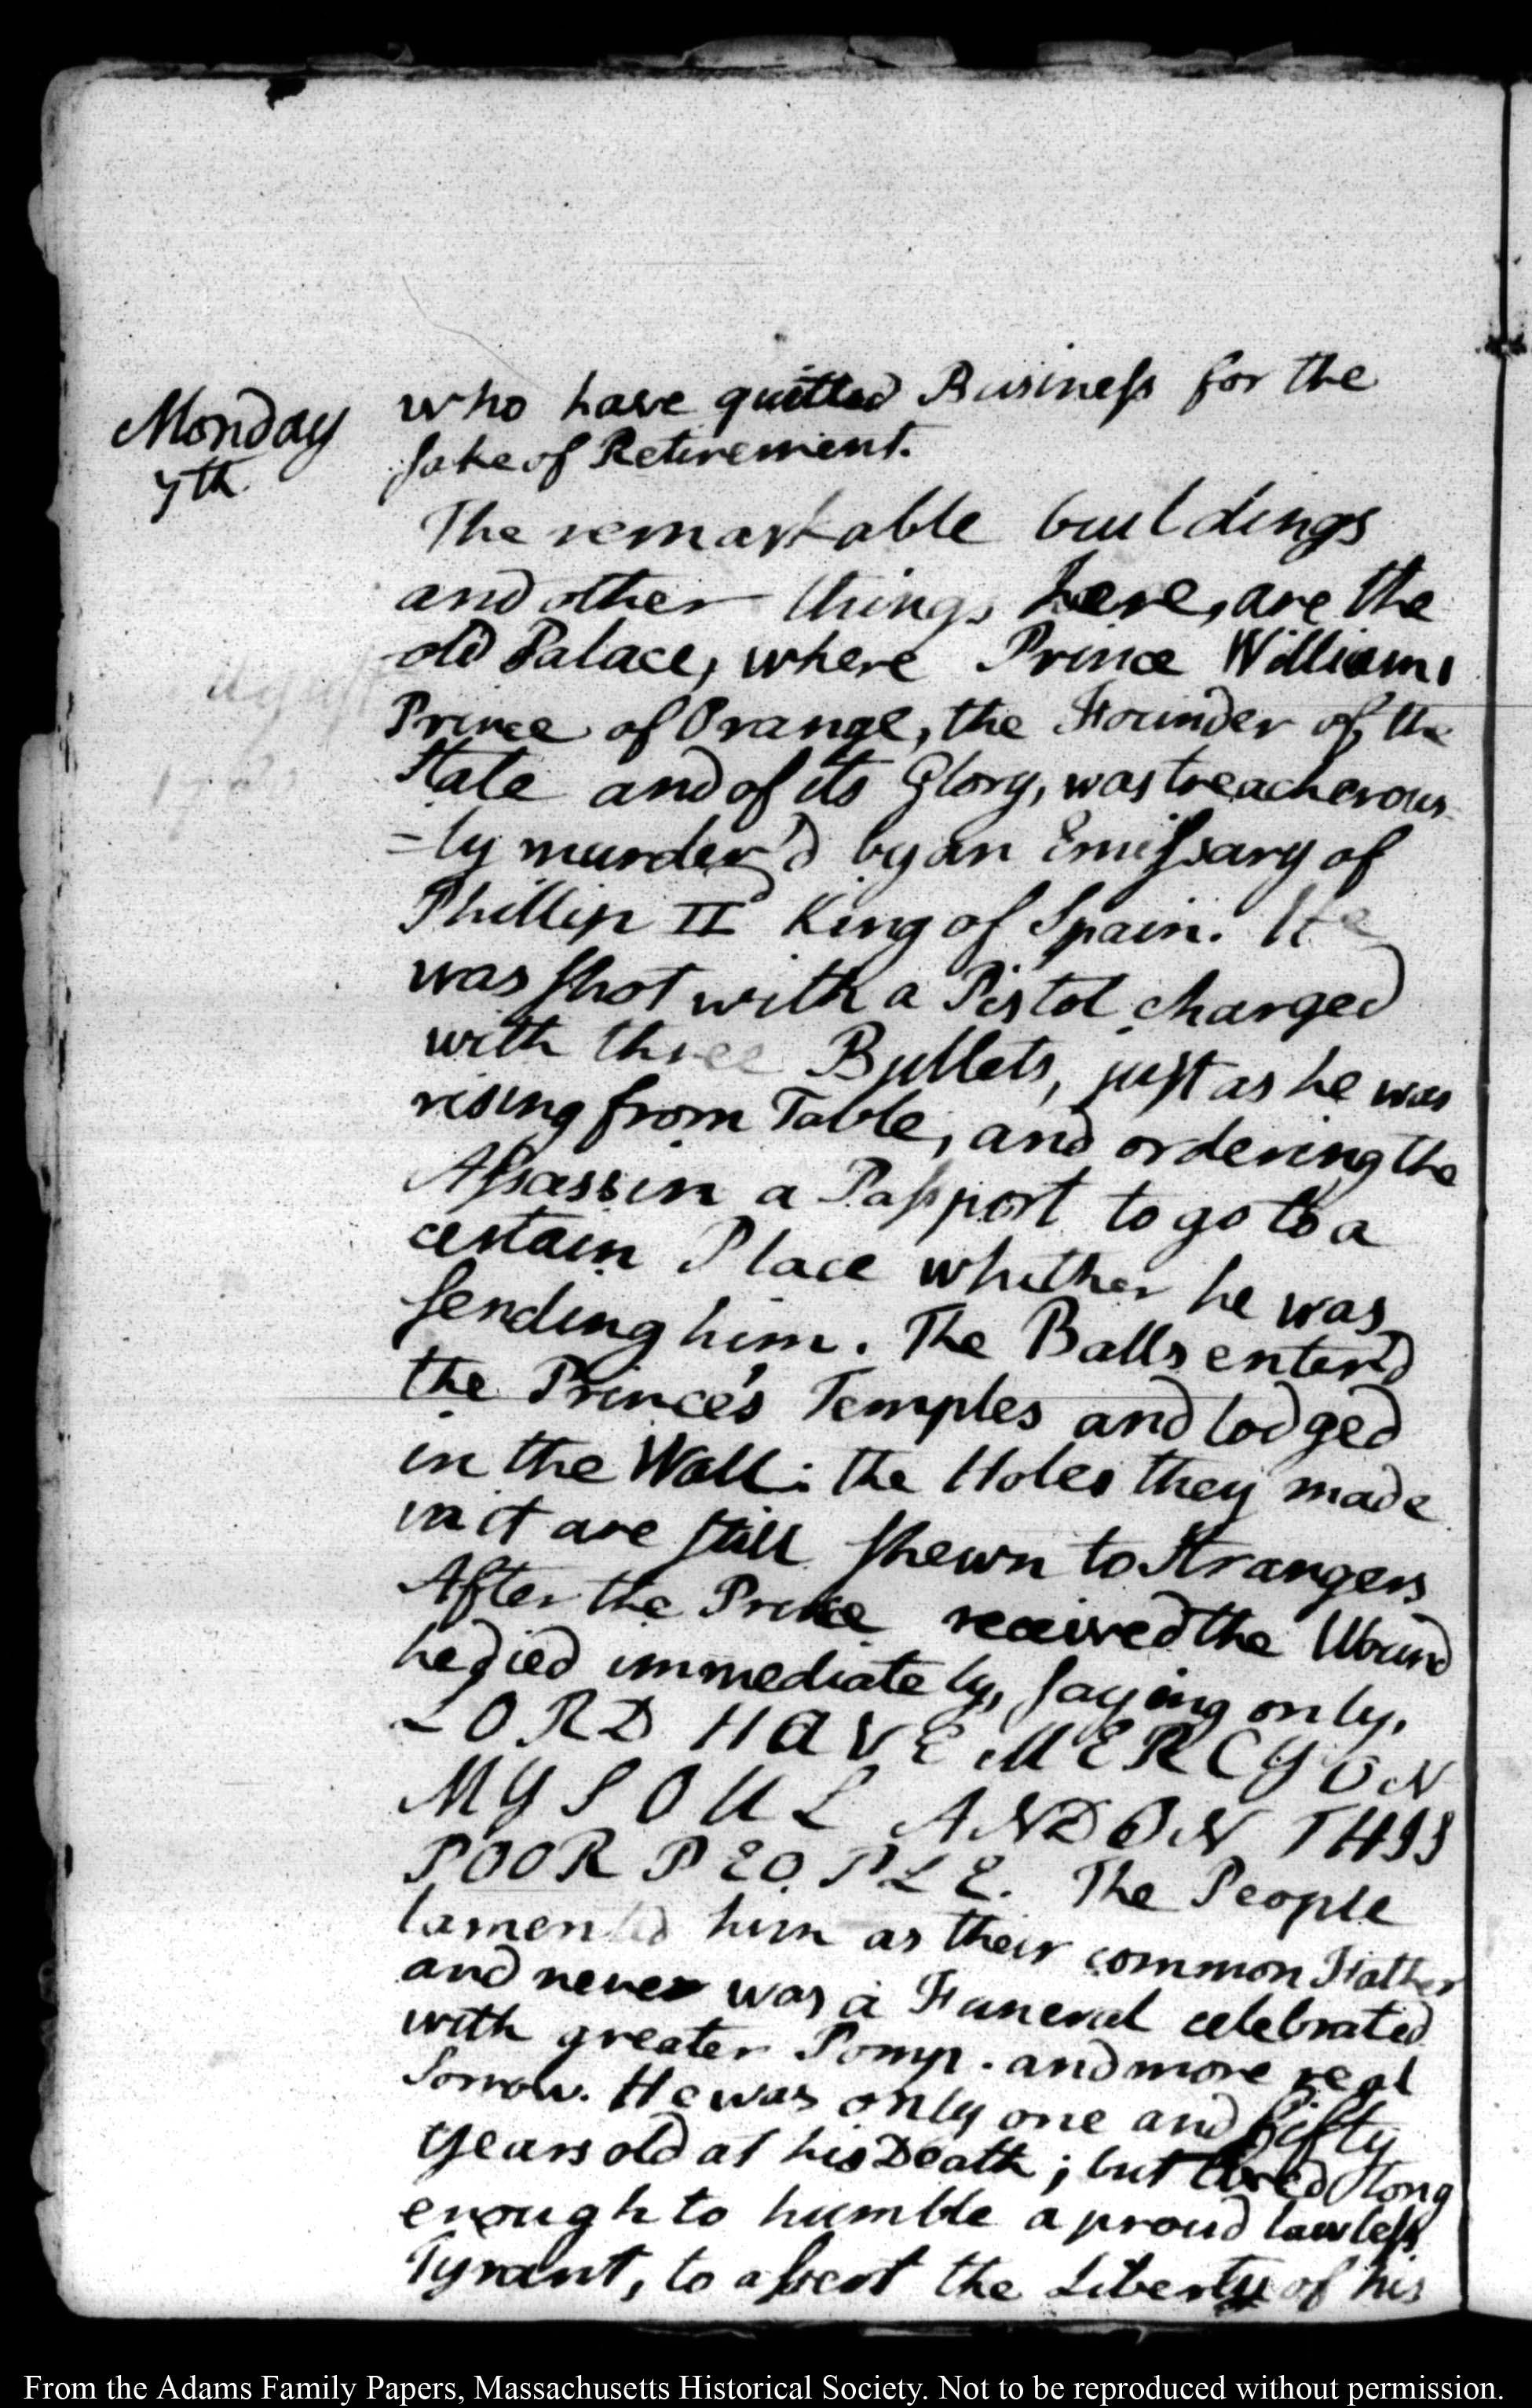 Monday
7th
who have quitted Business for the
sake of Retirement.
The remarkable buildings
and other things here, are the
old Palace, where Prince William,
Prince of Orange, the Founder of the
State and of its Glory, was treacherous
=ly murder'd by an Emissary of
Phillip IId King of Spain. He
was shot with a Pistol charged
with three Bullets, just as he was
rising from Table, and ordering the
Assassin a Passport to go to a
certain Place whither he was
sending him. The Balls enter'd
the Prince's Temples and lodged
in the Wall: the Holes they made
in it are still shewn to Strangers
After the Prince received the Wound
he died immediately, saying only,
LORD HAVE MERCY ON
MY SOUL AND ON THIS
POOR PEOPLE. The People
lamented him as their common Father
and never was a Funeral celebrated
with greater Pomp. and more real
Sorrow. He was only one and fifty
years old at his Death; but lived long
enough to humble a proud lawless
Tyrant, to assert the Liberty of his
From the Adams Family Papers, Massachusetts Historical Society. Not to be reproduced without permission.